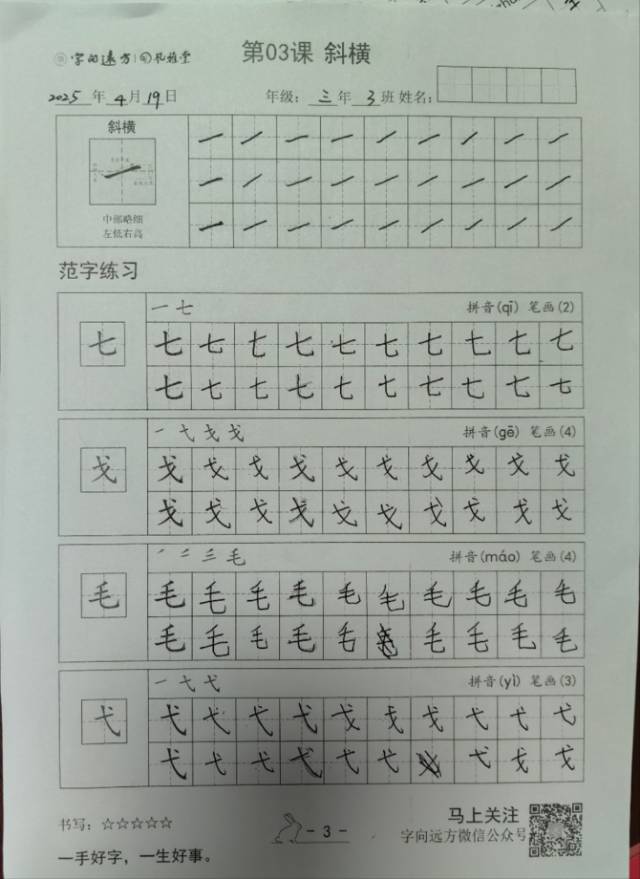 字向远方 | 礼雅堂
第03课 斜横
2025年4月19日 年级：三年3班 姓名：
斜横
中部略细
左低右高
范字练习
一 七 拼音(qī) 笔画(2)
七 七 七 七 七 七 七 七 七 七 七
七 七 七 七 七 七 七 七 七 七
一 弋 戈 戈 拼音(gē) 笔画(4)
戈 戈 戈 戈 戈 戈 戈 戈 戈 戈 戈
戈 戈 戈 戈 戈 戈 戈 戈 戈 戈
拼音(máo) 笔画(4)
毛 毛 毛 毛 毛 毛 毛 毛 毛 毛 毛
毛 毛 毛 毛 毛 毛 毛 毛 毛
一 弋 弋 拼音(yì) 笔画(3)
弋 弋 弋 弋 弋 戈 戈 戈 弋 弋 弋
弋 弋 弋 弋 弋 弋 弋 戈 戈
书写：☆☆☆☆☆
一手好字，一生好事。
- 3 -
马上关注
字向远方微信公众号